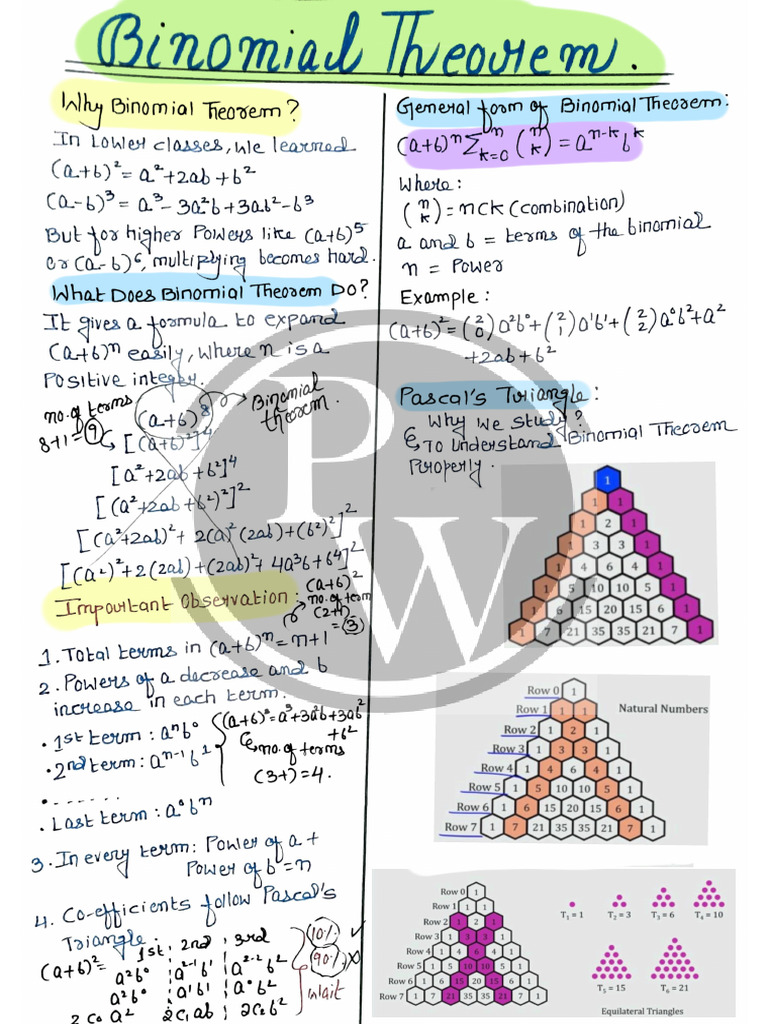 Binomial Theorem.
Why Binomial Theorem?
In Lower classes, we learned
(a+b)² = a²+2ab+b²
(a-b)³ = a³-3a²b+3ab²-b³
But for higher Powers like (a+b)⁵
or (a-b)⁶, multiplying becomes hard.
What Does Binomial Theorem Do?
It gives a formula to expand
(a+b)ⁿ easily, where n is a
Positive integer.
no. of terms
8+1=9
(a+b)⁸
Binomial
theorem.
[(a+b)²]⁴
[a²+2ab+b²]⁴
[(a²+2ab+b²)²]²
[(a²+2ab)²+2(a)²(2ab)+(b²)²]²
[(a²)²+2(2ab)+(2ab)²+4a³b+b⁴]²
Important Observation:
(a+b)²
no. of term
(2+1)
=3
1. Total terms in (a+b)ⁿ = n+1
2. Powers of a decrease and b
increase in each term.
• 1st term: aⁿb⁰
• 2nd term: aⁿ⁻¹b¹
• ------
• Last term: a⁰bⁿ
(a+b)³=a³+3a²b+3ab²
+b²
no. of terms
(3+)=4.
3. In every term: Power of a +
Power of b = n
4. Co-efficients follow Pascal's
Triangle:
1st 2nd 3rd
(a+b)²= a²b⁰ a²⁻¹b¹ a²⁻²b²
a²b⁰ a¹b¹ a⁰b²
2c₀ a² 2c₁ab 2c₂b²
10%
90%
wait
General form of Binomial Theorem:
(a+b)ⁿ Σⁿₖ₌₀ (n k) = aⁿ⁻ᵏbᵏ
Where:
(n k) = nCk (combination)
a and b = terms of the binomial
n = Power
Example:
(a+b)² = (2 0) a²b⁰ + (2 1) a¹b¹ + (2 2) a⁰b² + a²
+2ab+b²
Pascal's Triangle:
Why we study?
To understand Binomial Theorem
Properly.
1
1 1
1 2 1
1 3 3 1
1 4 6 4 1
1 5 10 10 5 1
1 6 15 20 15 6 1
1 7 21 35 35 21 7 1
Natural Numbers
Row 0 1
Row 1 1 1
Row 2 1 2 1
Row 3 1 3 3 1
Row 4 1 4 6 4 1
Row 5 1 5 10 10 5 1
Row 6 1 6 15 20 15 6 1
Row 7 1 7 21 35 35 21 7 1
Row 0 1
Row 1 1 1
Row 2 1 2 1
Row 3 1 3 3 1
Row 4 1 4 6 4 1
Row 5 1 5 10 10 5 1
Row 6 1 6 15 20 15 6 1
Row 7 1 7 21 35 35 21 7 1
T₁ = 1 T₂ = 3 T₃ = 6 T₄ = 10
T₅ = 15 T₆ = 21
Equilateral Triangles
PW